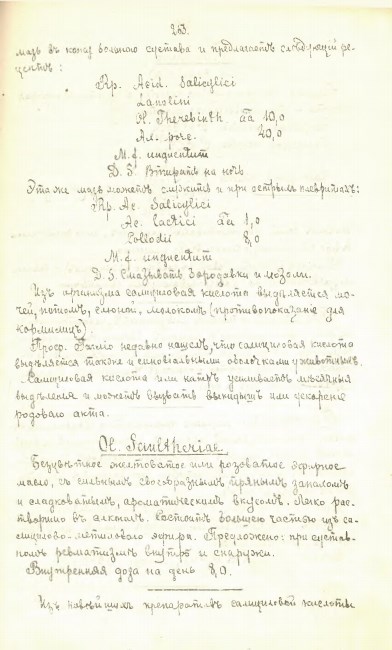 263.
мазь въ кожу больного сустава и предлагаетъ слѣдующій ре-
цептъ:
Rp. Acid. Salicylici
Lanolini
Ol. Therebinth aa 10,0
Ax. porc. 40,0
M. f. unguentum
D. S. Втирать на ночь
Эта же мазь можетъ служить и при острыхъ плевритахъ:
Rp. Ac. Salicylici
Ac. lactici aa 1,0
Collodii 8,0
M. f. unguentum
D. S. Смазывать бородавки и мозоли.
Изъ организма салициловая кислота выдѣляется мо-
чей, потомъ, слюной, молокомъ (противопоказание для
кормилицъ).
Проф. недавно нашелъ, что салициловая кислота
выдѣляется также и синовіальными оболочками у животныхъ.
Салициловая кислота или натръ усиливаетъ мѣсячныя
выдѣления и можетъ вызвать выкидышъ или ускорение
родового акта.
Ol. Gaultheriae.
Безцвѣтное желтоватое или розоватое эфирное
масло, съ сильнымъ своеобразнымъ прянымъ запахомъ
и сладковатымъ, ароматическимъ вкусомъ. Легко рас-
творимо въ алкоголѣ. Состоитъ большею частью изъ са-
лицилово-метиловаго эфира. Предложено: при сустав-
номъ ревматизмѣ внутрь и снаружи.
Внутренняя доза на день 8,0.
Изъ новѣйшихъ препаратовъ салициловой кислоты